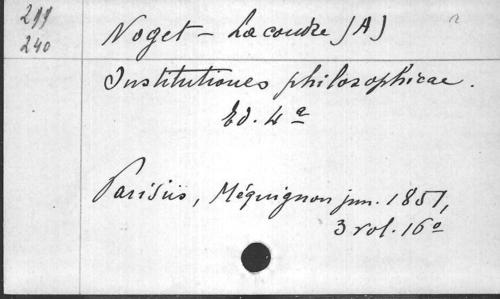 299
240
Noget - Lacoudre (A)
Institutiones philosophicae.
Ed. 4a
Parisiis, Méquignon jun. 1851,
3 vol. 16o